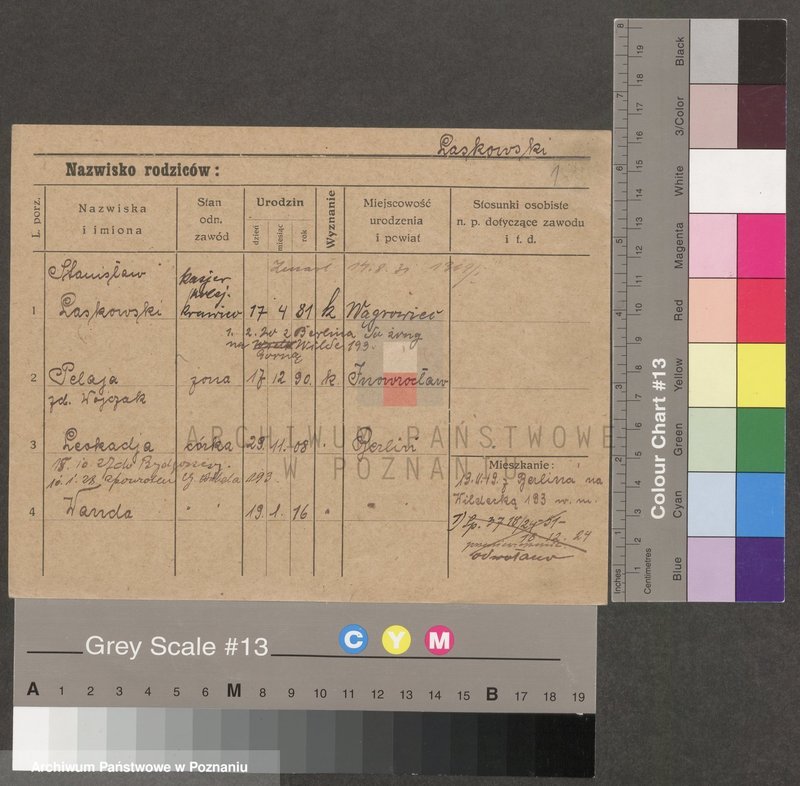 Laskowski
Nazwisko rodziców:
L. porz.
Nazwiska i imiona
Stan odn. zawód
Urodzin
dzień
miesiąc
rok
Wyznanie
Miejscowość urodzenia i powiat
Stosunki osobiste n. p. dotyczące zawodu i t. d.
Stanisław
kasjer
kolej.
Zmarł 14.8.31
1 Laskowski krawiec 17 4 81 k Wągrowiec
1. 2. 20 z Berlina
na Wilde 193.
Górną
2 Pelaja żona 17 12 90. k. Inowrocław
zd. Wojczak
3 Leokadja córka 29. 11. 08 Berlin
18. 10. 27 do Bydgoszczy.
10. 1. 28. z powrotem G. Wilda 193.
4 Wanda " " 19. 1. 16 " "
Mieszkanie:
z Berlina na
193 w. m.
10. 12. 24
odwołano
ARCHIWUM PAŃSTWOWE
W POZNANIU
Grey Scale #13
C Y M
A 1 2 3 4 5 6 M 8 9 10 11 12 13 14 15 B 17 18 19
Archiwum Państwowe w Poznaniu
Colour Chart #13
Blue
Cyan
Green
Yellow
Red
Magenta
White
3/Color
Black
Inches
1 2 3 4 5 6 7 8
Centimetres
1 2 3 4 5 6 7 8 9 10 11 12 13 14 15 16 17 18 19